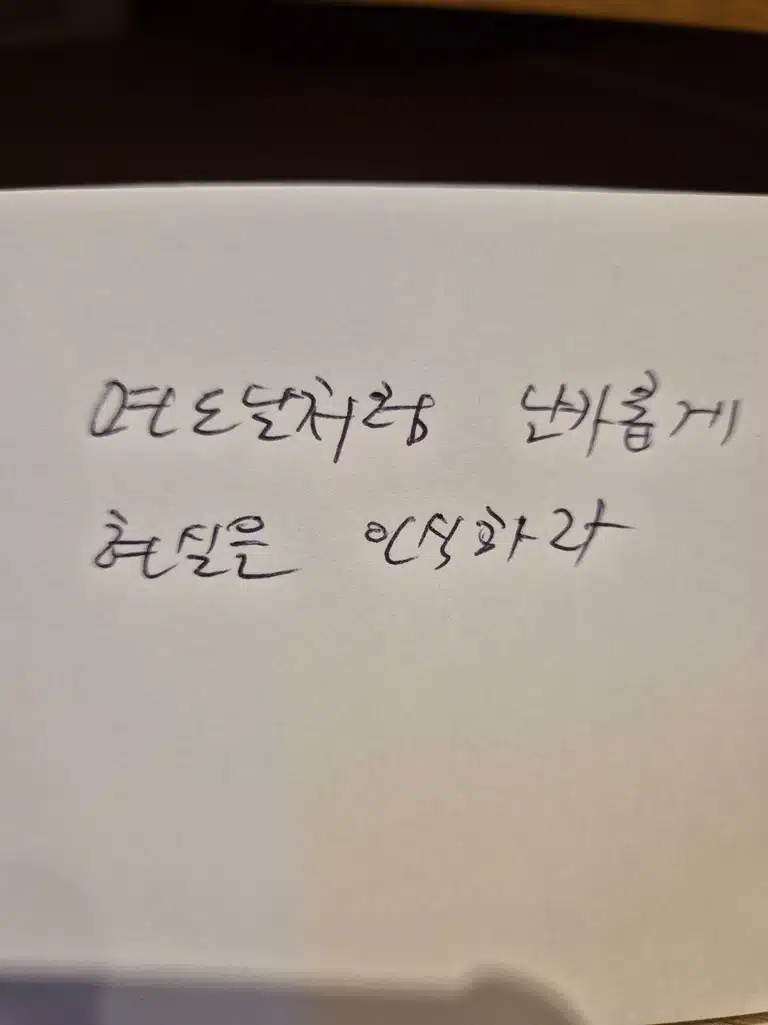 면도날처럼 난카롭게
현실은 인식하라